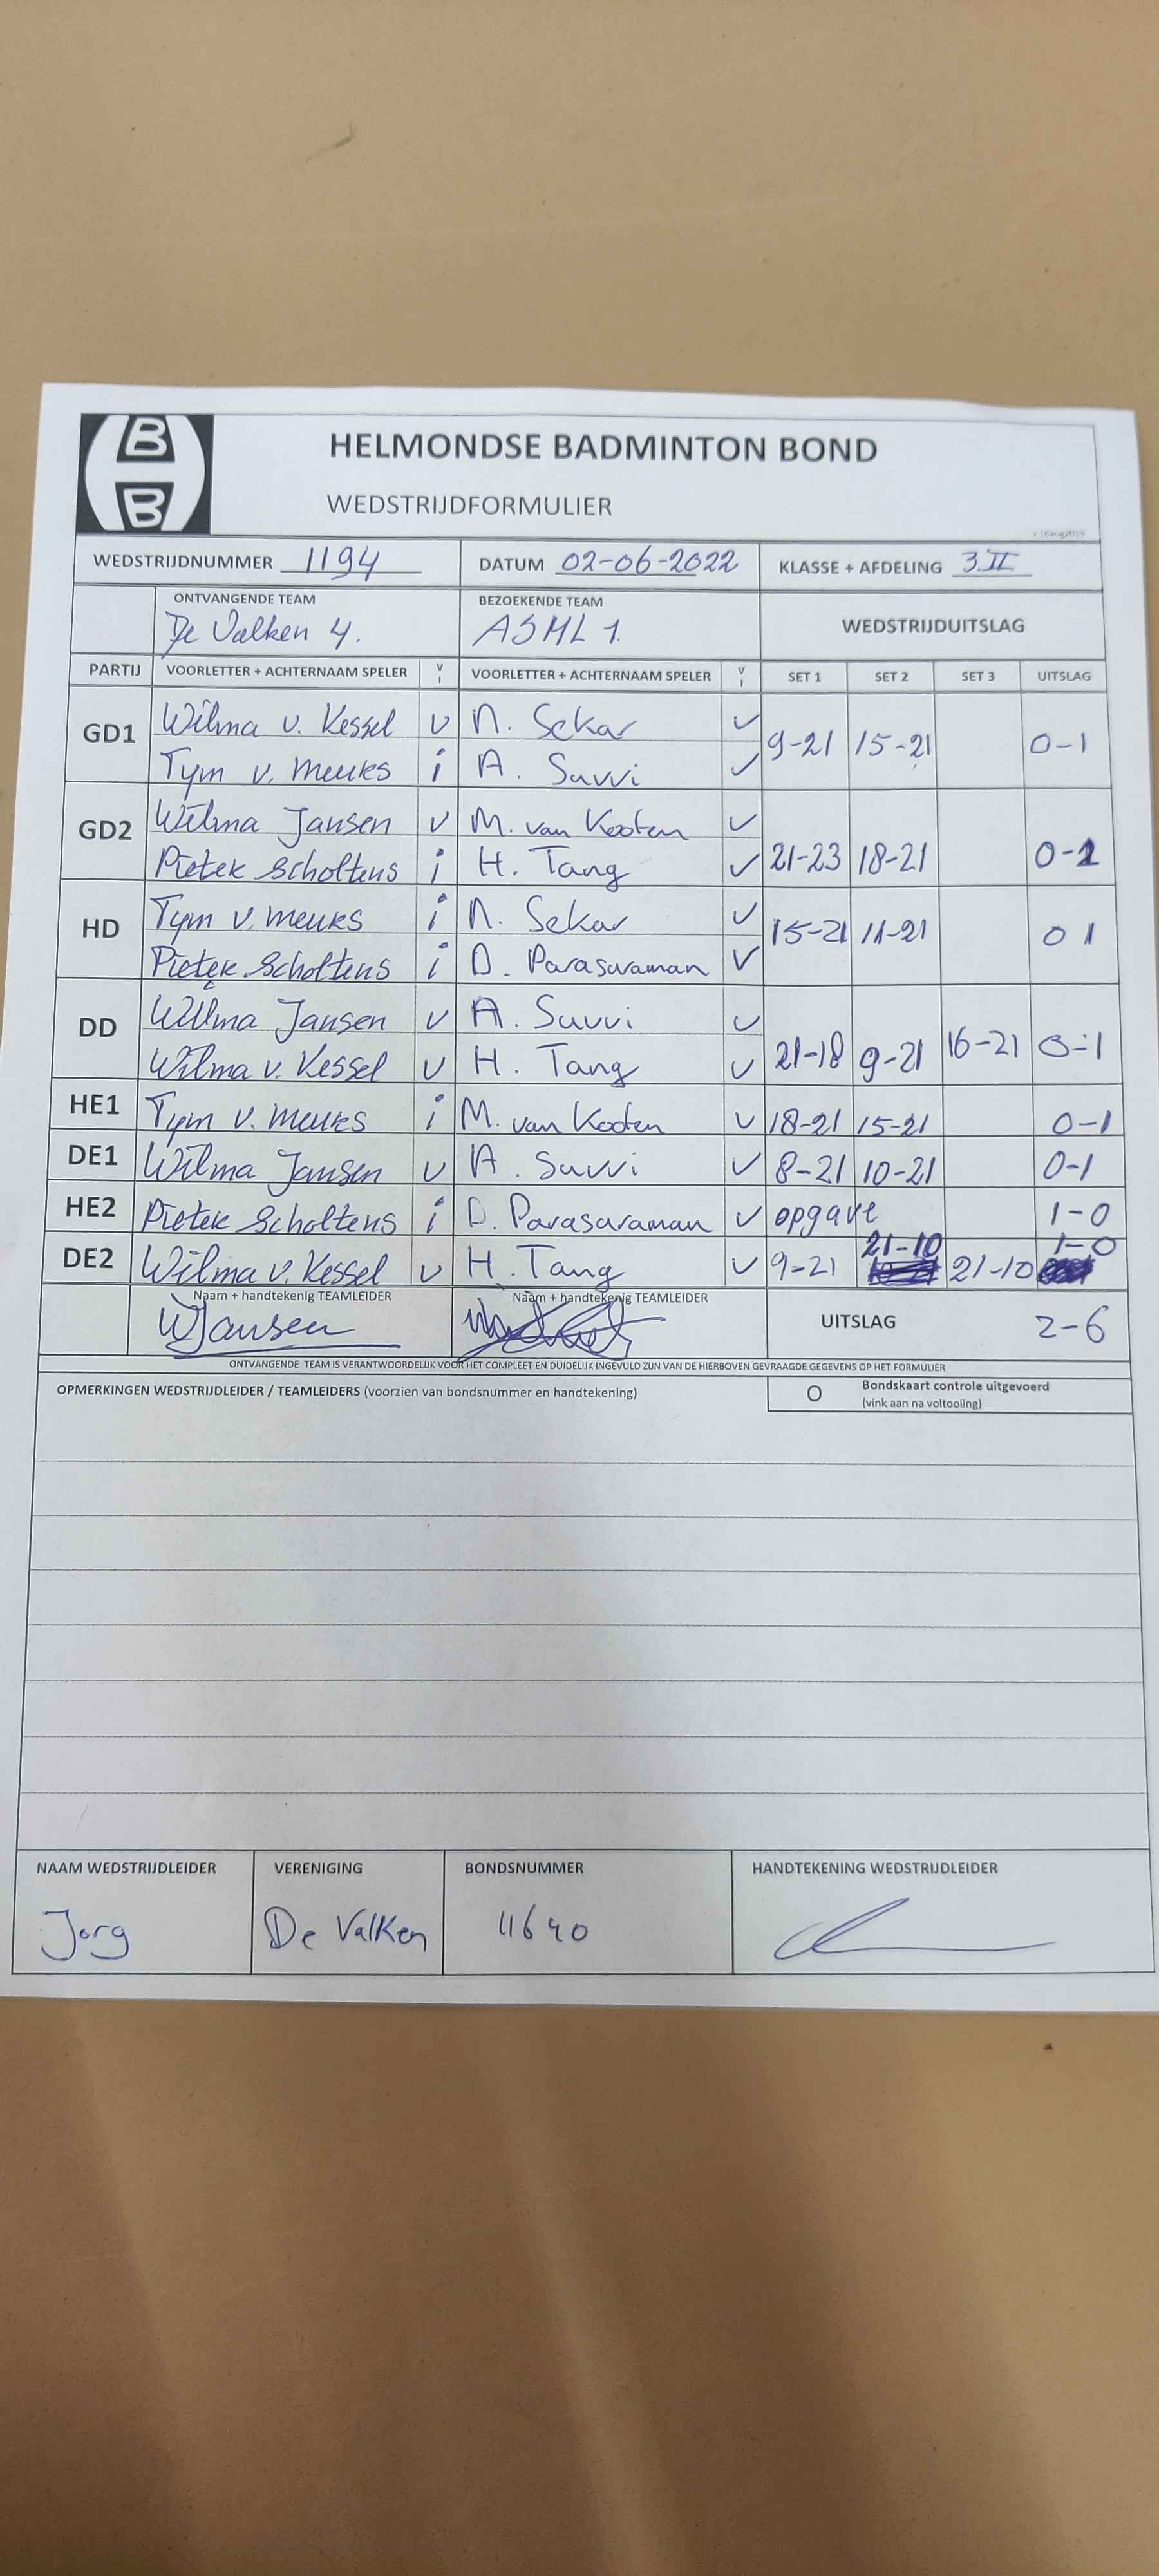 B
B
HELMONDSE BADMINTON BOND
WEDSTRIJDFORMULIER
WEDSTRIJDNUMMER 1194 DATUM 02-06-2022 KLASSE + AFDELING 3.II
ONTVANGENDE TEAM BEZOEKENDE TEAM
De Valken 4. ASML 1. WEDSTRIJDUITSLAG
PARTIJ VOORLETTER + ACHTERNAAM SPELER V I VOORLETTER + ACHTERNAAM SPELER V I SET 1 SET 2 SET 3 UITSLAG
GD1 Wilma v. Kessel v N. Sekar ✓ 9-21 15-21 0-1
Tym v. meurs i A. Suvvi ✓
GD2 Wilma Jansen v M. van Kooten ✓
Pieter Scholtens i H. Tang ✓ 21-23 18-21 0-1
HD Tym v. meurs i N. Sekar ✓ 15-21 11-21 0 1
Pieter Scholtens i D. Parasuraman ✓
DD Wilma Jansen v A. Suvvi ✓
Wilma v. Kessel v H. Tang ✓ 21-18 9-21 16-21 0-1
HE1 Tym v. meurs i M. van Kooten ✓ 18-21 15-21 0-1
DE1 Wilma Jansen v A. Suvvi ✓ 8-21 10-21 0-1
HE2 Pieter Scholtens i D. Parasuraman ✓ opgave 1-0
DE2 Wilma v. Kessel v H. Tang ✓ 9-21 21-10 21-10 1-0
Naam + handtekenig TEAMLEIDER Naam + handtekenig TEAMLEIDER
WJansen UITSLAG 2-6
ONTVANGENDE TEAM IS VERANTWOORDELIJK VOOR HET COMPLEET EN DUIDELIJK INGEVULD ZIJN VAN DE HIERBOVEN GEVRAAGDE GEGEVENS OP HET FORMULIER
OPMERKINGEN WEDSTRIJDLEIDER / TEAMLEIDERS (voorzien van bondsnummer en handtekening) O Bondskaart controle uitgevoerd
(vink aan na voltooling)
NAAM WEDSTRIJDLEIDER VERENIGING BONDSNUMMER HANDTEKENING WEDSTRIJDLEIDER
Jorg De Valken 11640